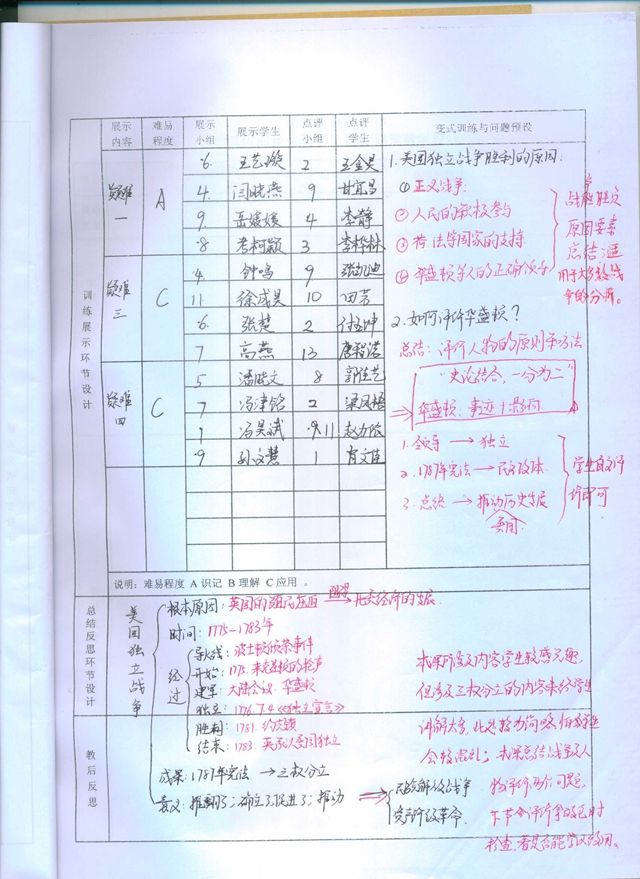 展示内容 难易程度 展示小组 展示学生 点评小组 点评学生 变式训练与问题预设
训练展示环节设计
疑难一 A
6. 王艺璇 2
4. 闫晓燕 9 甘宜昌
9. 岳媛媛 4 李静
8 考柯颖 3 李桦林
疑难三 C
4 钟鸣 9 张凯迪
11 徐成昊 10 田芳
6. 张楚 2
7 高燕 13 唐智诺
疑难四 C
5 潘晓文 8 郭佳艺
7 冯津铭 2 梁凤梧
1 冯昊斌 9 11
9 孙文慧 1 育文佳
1. 美国独立战争胜利的原因:
①正义战争;
②人民的积极参与
③荷法等国家的支持
④华盛顿等人的正确领导
战争胜败
原因要素
总结:适
用于大多数战
争的分析。
2. 如何评价华盛顿?
总结: 评价人物的原则和方法
"史论结合,一分为二"
⇒ 华盛顿、事迹+影响
1. 领导 → 独立
2. 1787年宪法 → 民主政体
3. 总统 → 推动历史发展
美国
学生自主评
价即可
说明:难易程度 A 识记 B 理解 C 应用 。
总结反思环节设计
美国独立战争
根本原因: 英国的殖民压迫 阻碍→ 北美经济的发展
时间: 1775-1783年
经过
导火线: 波士顿倾茶事件
开始: 1775. 来克星顿的枪声
建军: 大陆会议. 华盛顿
独立: 1776.7.4《独立宣言》
胜利: 1781. 约克镇
结束: 1783. 英承认美国独立
成果: 1787年宪法 → 三权分立
意义: 推翻了;确立了;促进了;推动 ⇒ 民族解放战争
资产阶级革命.
教后反思
本课所涉及内容学生较感兴趣,
但涉及三权分立的内容未给学生
讲解太多,此处较为简略,
会较混乱;本课总结战争及人
物评价两个问题,
下节会评价拿破仑时
检查,看是否能学以致用。